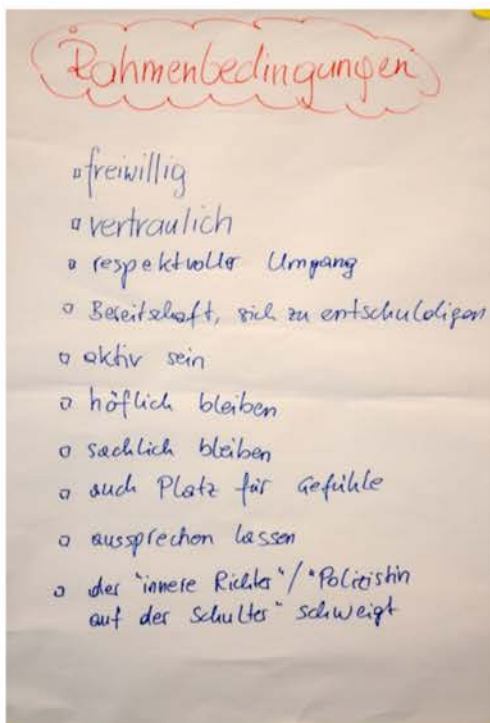 Rahmenbedingungen
▫ freiwillig
▫ vertraulich
▫ respektvoller Umgang
▫ Bereitschaft, sich zu entschuldigen
▫ aktiv sein
▫ höflich bleiben
▫ sachlich bleiben
▫ auch Platz für Gefühle
▫ aussprechen lassen
▫ der "innere Richter"/"Polizistin
auf der Schulter" schweigt